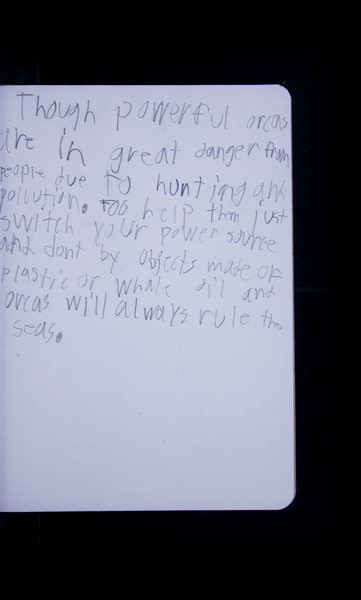 Though powerful orcas
are in great danger from
people due to hunting and
pollution. too help them just
switch your power source
and dont by objects made of
plastic or whale oil and
orcas will always rule the
seas.